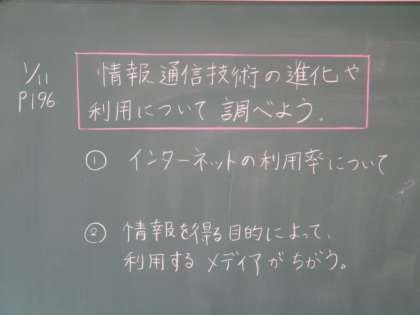 1/11
P196
情報通信技術の進化や
利用について調べよう.
① インターネットの利用率について
② 情報を得る目的によって、
利用するメディアがちがう。